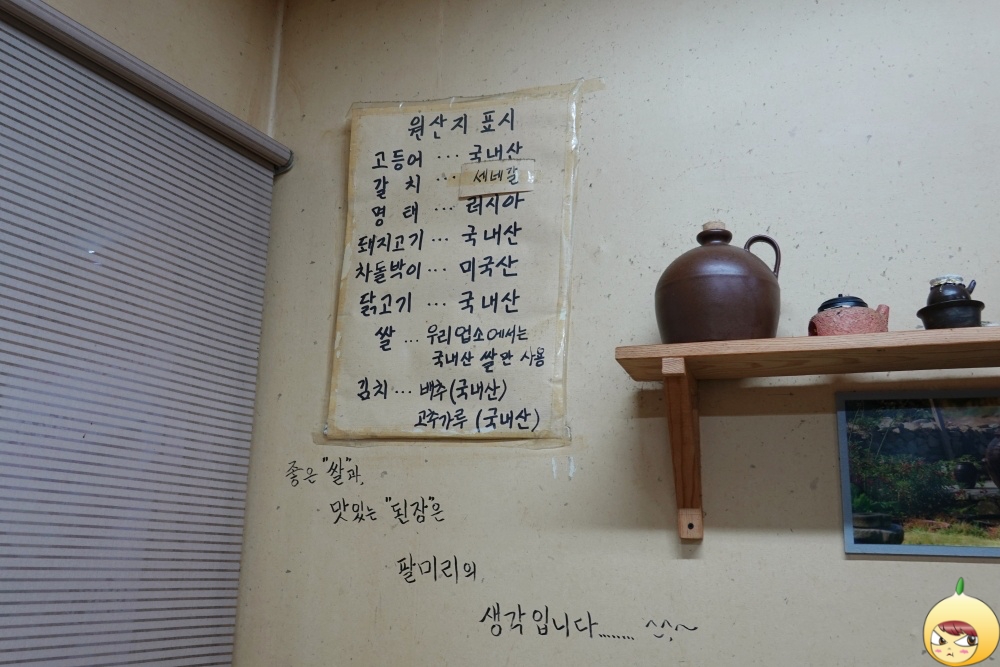 원산지 표시
고등어 ··· 국내산
갈 치 ··· 세네갈
명 태 ··· 러시아
돼지고기 ··· 국내산
차돌박이 ··· 미국산
닭고기 ··· 국내산
쌀 ··· 우리업소에서는
국내산 쌀만 사용
김치 ··· 배추(국내산)
고추가루 (국내산)
좋은 "쌀"과,
맛있는 "된장"은
팔미리의
생각입니다....... ^^;~